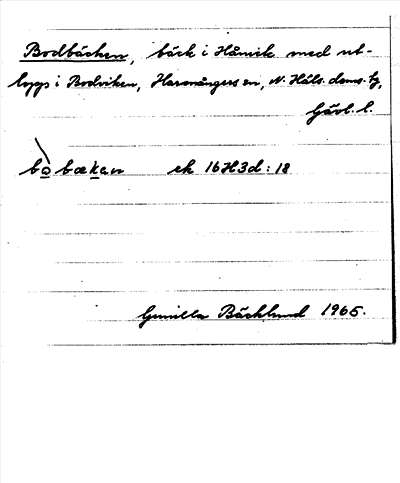 Bodbäcken, bäck i Håmik med ut-
lopp i Bodviken, Harmångers sn, N. Häls. doms. tg,
Gävl. l.
bòbækan ek 16H3d:18
Gunilla Bäcklund 1965.